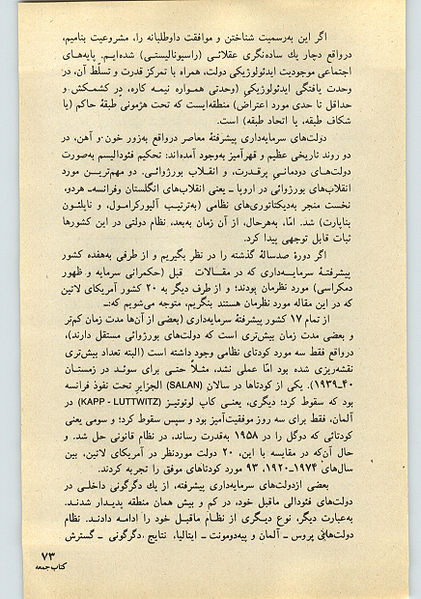 اگر این به‌رسمیت شناختن و موافقت داوطلبانه را، مشروعیت بنامیم،
درواقع دچار یك ساده‌نگری عقلائی (راسیونالیستی) شده‌ایم. پایه‌های
اجتماعی موجودیت ایدئولوژیکی دولت، همراه با تمرکز قدرت و تسلّط آن، در
وحدت یافتگی ایدئولوژیکی (وحدتی همواره نیمه کاره، در کشمکش و
حداقل تا حدی مورد اعتراض) منطقه‌ایست که تحت هژمونی طبقهٔ حاکم (یا
شکاف طبقه، یا اتحاد طبقه) است.
دولت‌های سرمایه‌داری پیشرفتهٔ معاصر درواقع به‌زور خون و آهن، در
دو روند تاریخی عظیم و قهرآمیز به‌وجود آمده‌اند: تحکیم فئودالیسم به‌صورت
دولت‌های دودمانی پرقدرت، و انقلاب بورژوائی. دو مهم‌ترین مورد
انقلاب‌های بورژوائی در اروپا ـ یعنی انقلاب‌های انگلستان وفرانسه‌ـ هردو،
نخست منجر به‌دیکتاتوری‌های نظامی (به‌ترتیب آلیورکرامول، و ناپلئون
بناپارت) شد. امّا، به‌هرحال، از آن زمان به‌بعد، نظام دولتی در این کشورها
ثبات قابل توجهی پیدا کرد.
اگر دورهٔ صدسالهٔ گذشته را در نظر بگیریم و از طرفی به‌هفده کشور
پیشرفتهٔ سرمایه‌داری که در مقالات قبل (حکمرانی سرمایه و ظهور
دمکراسی) مورد نظرمان بودند؛ و از طرف دیگر به ۲۰ کشور آمریکای لاتین
که در این مقاله مورد نظرمان هستند بنگریم، متوجه می‌شویم که:ـ
از تمام ۱۷ کشور پیشرفتهٔ سرمایه‌داری (بعضی از آن‌ها مدت زمان کم‌تر
و بعضی مدت زمان بیش‌تری است که دولت‌های بورژوائی مستقل دارند)،
درواقع فقط سه مورد کودتای نظامی وجود داشته است (البته تعداد بیش‌تری
نقشه‌ریزی شده بود امّا عملی نشد، مثلاً حتی برای سوئد در زمستان
۴۰ـ۱۹۳۹). یکی از کودتاها در سالان (SALAN) الجزایرِ تحت نفوذ فرانسه
بود که سقوط کرد؛ دیگری، یعنی کاپ لوتویتز (KAPP - LUTTWITZ) در
آلمان، فقط برای سه روز موفقیت‌آمیز بود و سپس سقوط کرد؛ و سومی یعنی
کودتائی که دوگل را در ۱۹۵۸ به‌قدرت رساند، در نظام قانونی حل شد. و
حال آن‌که در مقایسه با این، ۲۰ دولت موردنظر در آمریکای لاتین، بین
سال‌های ۱۹۷۴ـ۱۹۲۰، ۹۳ مورد کودتاهای موفق را تجربه کردند.
بعضی ازدولت‌های سرمایه‌داری پیشرفته، از یك دگرگونی داخلی در
دولت‌های فئودالی ماقبل خود، در کم و بیش همان منطقه پدیدار شدند.
به‌عبارت دیگر، نوع دیگری از نظام ماقبل خود را ادامه دادند. نظام
دولت‌هایی پروس ـ آلمان و پیه‌دومونت ـ ایتالیا، نتایج دگرگونی ـ گسترش
۷۳
کتاب جمعه